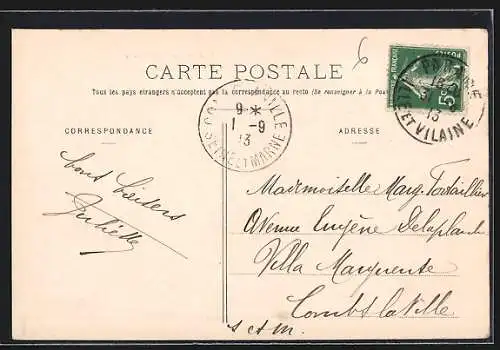 CARTE POSTALE
Tous les pays étrangers n'acceptent pas la correspondance au recto (Se renseigner à la Poste)
CORRESPONDANCE
ADRESSE
9 *
1 - 9
13
SEINE ET MARNE
ILLE ET VILAINE
5c
6
bons baisers
Juliette
Mademoiselle Marg.
Avenue Eugène Delaplanche
Villa Marguerite
Combs la Ville
S et M.